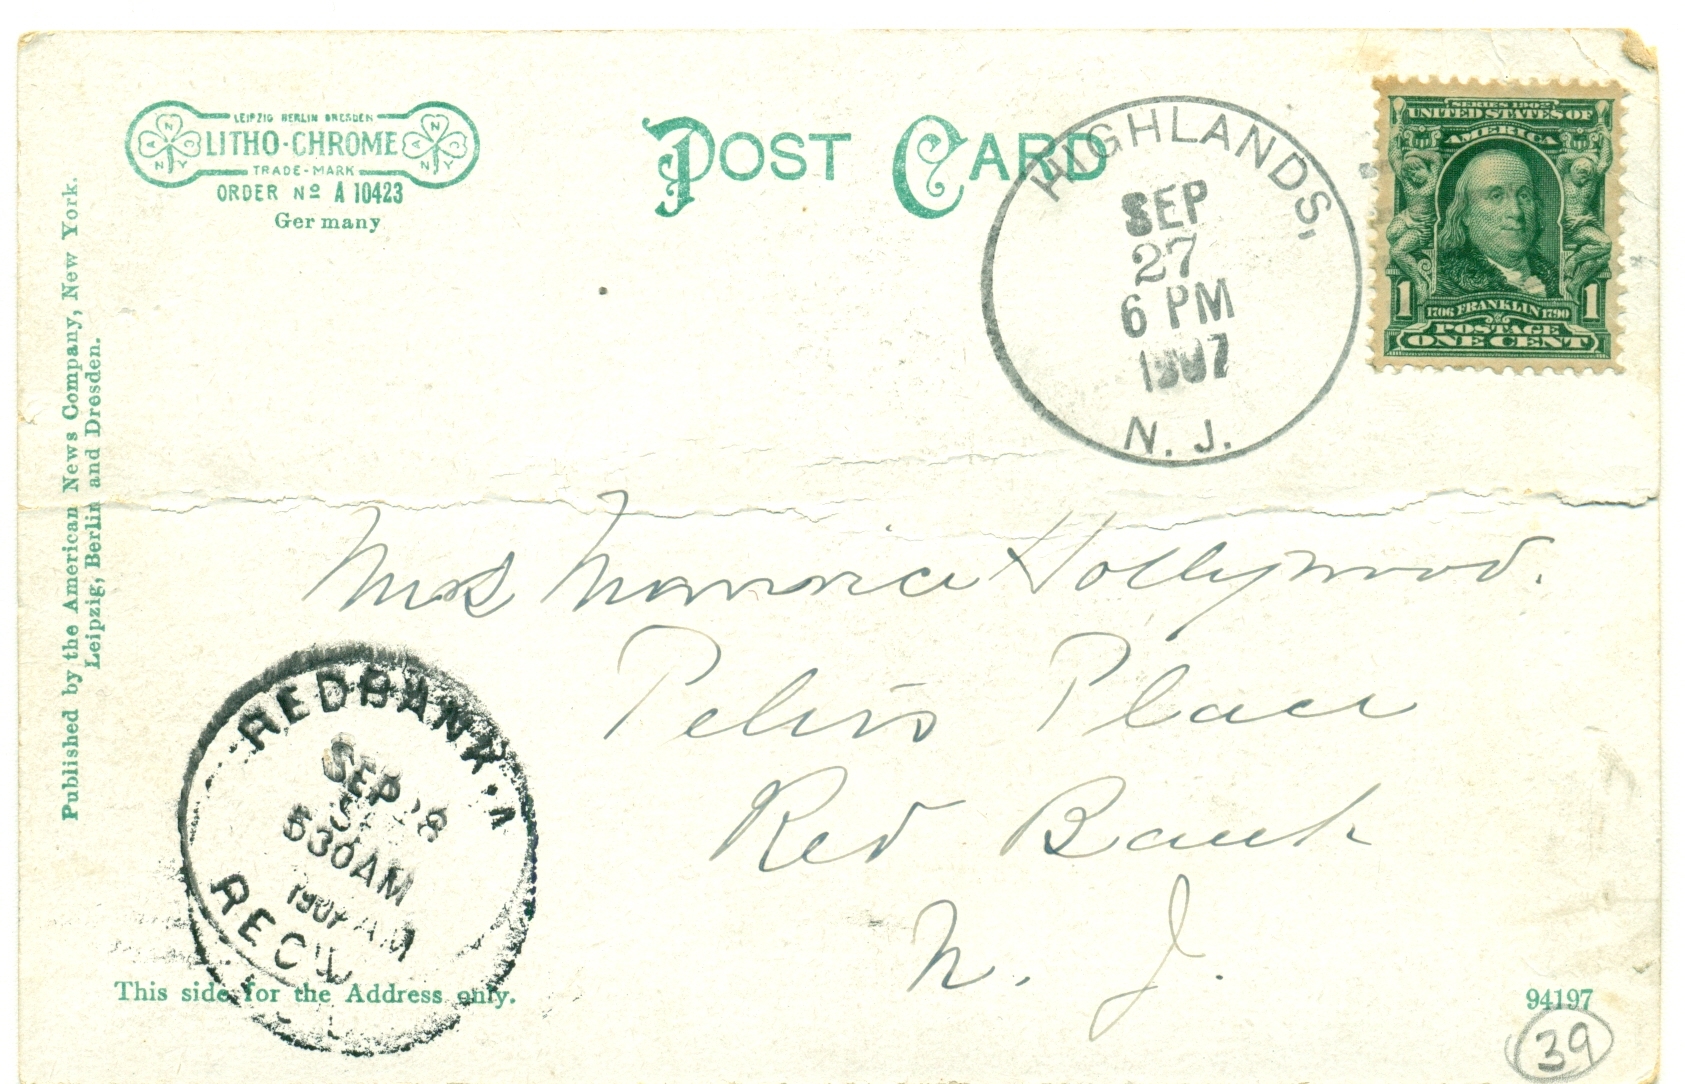 LEIPZIG BERLIN DRESDEN
LITHO-CHROME
TRADE-MARK
A N N Y
A N N Y C
ORDER Nº A 10423
Germany
POST CARD
HIGHLANDS,
SEP
27
6 PM
1907
N. J.
SERIES 1902
UNITED STATES OF
AMERICA
1 1
1706 FRANKLIN 1790
POSTAGE
ONE CENT
Published by the American News Company, New York.
Leipzig, Berlin and Dresden.
Mrs Hollywood.
Place
Red Bank
N. J.
RED BANK
SEP 28
530AM
1907 AM
REC'D
This side for the Address only.
94197
39